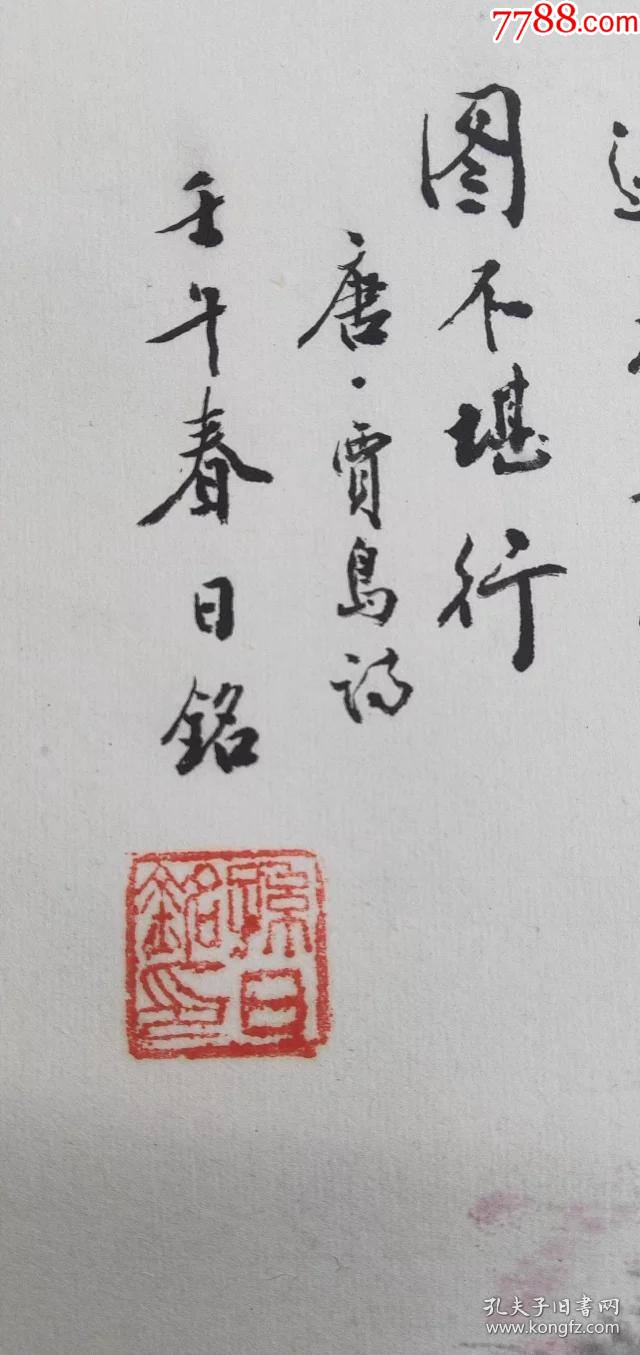 7788.com
图不堪行
唐·賈島詩
壬午春日銘
孫日
銘印
孔夫子旧書网
www.kongfz.com